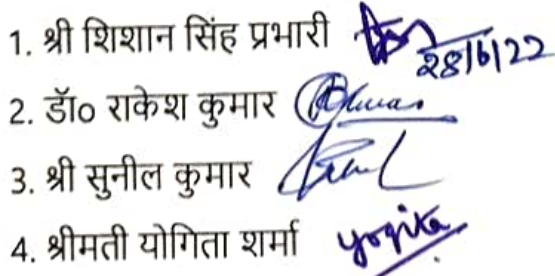 1. श्री शिशान सिंह प्रभारी 28/6/22
2. डॉ० राकेश कुमार
3. श्री सुनील कुमार
4. श्रीमती योगिता शर्मा yogita